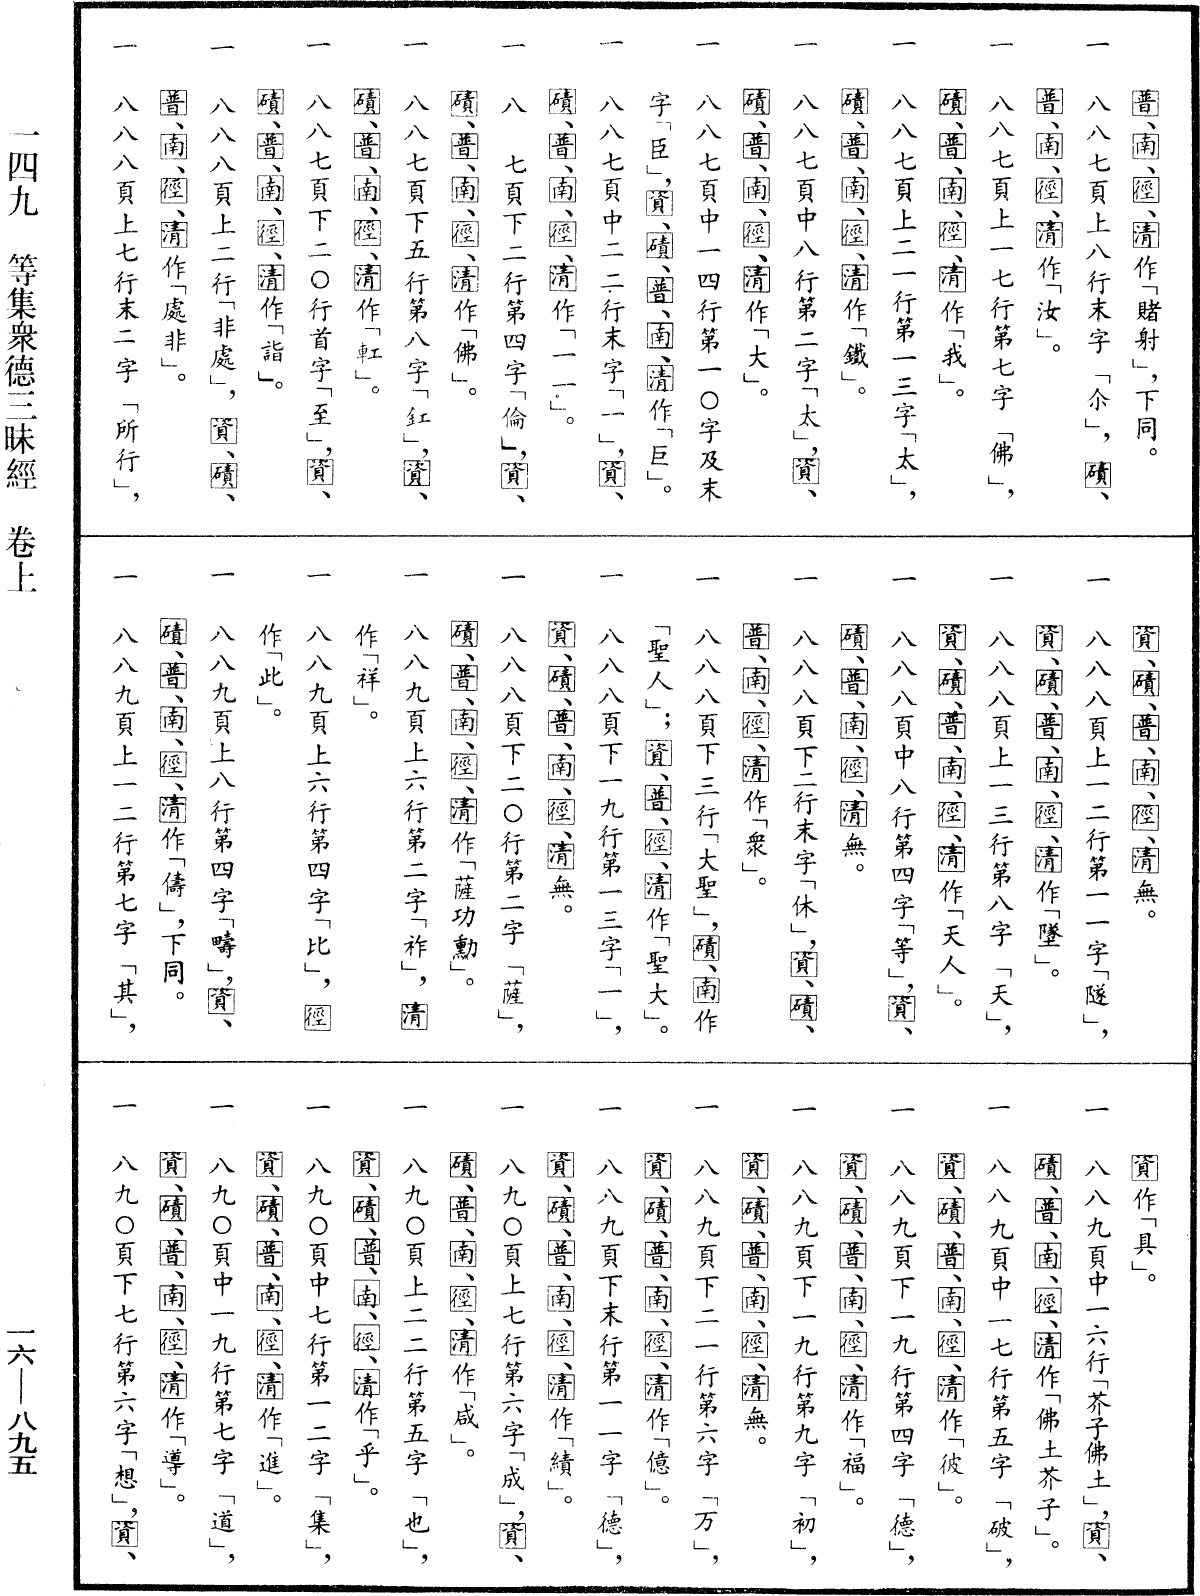 普、南、徑、清作「賭射」，下同。
一　八八七頁上八行末字「尒」，磧、
普、南、徑、清作「汝」。
一　八八七頁上一七行第七字「佛」，
磧、普、南、徑、清作「我」。
一　八八七頁上二一行第一三字「太」，
磧、普、南、徑、清作「鐵」。
一　八八七頁中八行第二字「太」，資、
磧、普、南、徑、清作「大」。
一　八八七頁中一四行第一〇字及末
字「臣」，資、磧、普、南、清作「巨」。
一　八八七頁中二二行末字「一」，資、
磧、普、南、徑、清作「一一」。
一　八八七頁下二行第四字「倫」，資、
磧、普、南、徑、清作「佛」。
一　八八七頁下五行第八字「釭」，資、
磧、普、南、徑、清作「軠」。
一　八八七頁下二〇行首字「至」，資、
磧、普、南、徑、清作「詣」。
一　八八八頁上二行「非處」，資、磧、
普、南、徑、清作「處非」。
一　八八八頁上七行末二字「所行」，
資、磧、普、南、徑、清無。
一　八八八頁上一二行第一一字「隧」，
資、磧、普、南、徑、清作「墜」。
一　八八八頁上一三行第八字「天」，
資、磧、普、南、徑、清作「天人」。
一　八八八頁中八行第四字「等」，資、
磧、普、南、徑、清無。
一　八八八頁下二行末字「休」，資、磧、
普、南、徑、清作「衆」。
一　八八八頁下三行「大聖」，磧、南作
「聖人」；資、普、徑、清作「聖大」。
一　八八八頁下一九行第一三字「一」，
資、磧、普、南、徑、清無。
一　八八八頁下二〇行第二字「薩」，
磧、普、南、徑、清作「薩功勳」。
一　八八九頁上六行第二字「祚」，清
作「祥」。
一　八八九頁上六行第四字「比」，徑
作「此」。
一　八八九頁上八行第四字「疇」，資、
磧、普、南、徑、清作「儔」，下同。
一　八八九頁上一二行第七字「其」，
資作「具」。
一　八八九頁中一六行「芥子佛土」，資、
磧、普、南、徑、清作「佛土芥子」。
一　八八九頁中一七行第五字「破」，
資、磧、普、南、徑、清作「彼」。
一　八八九頁下一九行第四字「德」，
資、磧、普、南、徑、清作「福」。
一　八八九頁下一九行第九字「初」，
資、磧、普、南、徑、清無。
一　八八九頁下二一行第六字「万」，
資、磧、普、南、徑、清作「億」。
一　八八九頁下末行第一一字「德」，
資、磧、普、南、徑、清作「績」。
一　八九〇頁上七行第六字「成」，資、
磧、普、南、徑、清作「咸」。
一　八九〇頁上二二行第五字「也」，
資、磧、普、南、徑、清作「乎」。
一　八九〇頁中七行第一二字「集」，
資、磧、普、南、徑、清作「進」。
一　八九〇頁中一九行第七字「道」，
資、磧、普、南、徑、清作「導」。
一　八九〇頁下七行第六字「想」，資、
一四九　等集衆德三昧經　卷上
一六—八九五